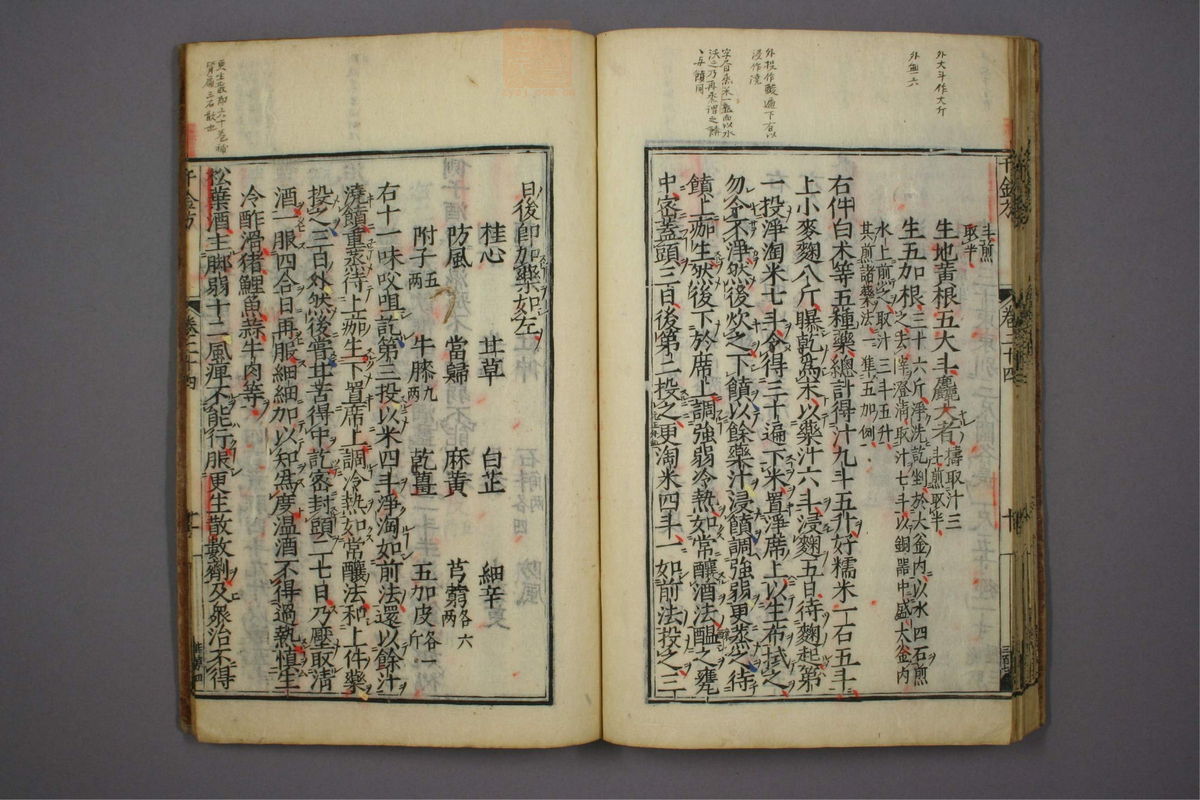 外大斗作大斤
外無二六
外投作酸遍下有以
浸作澆
斗煎
取半
生地黃根五大斗麤大者
擣取汁三
斗煎取半
生五加根三十六斤淨洗訖剉於大釜內以水四石煎
之去滓澄清取汁七斗以銅器中盛大釜內
水上煎之取汁三斗五升
其煎諸藥法一準五加例
右件白术等五種藥總計得汁九斗五升好糯米一石五斗
上小麥麴八斤曝乾為末以藥汁六斗浸麴五日待麴起第
一投淨淘米七斗令得三十遍下米置淨席上以生布拭之
勿令不淨然後炊之下饙以餘藥汁浸饙調強弱更蒸之待
饙上痂生然後下於席上調強弱冷熱如常釀酒法醞之甕
中密蓋頭三日後第二投之更淘米四斗一如前法投之三
千金方
卷二十四
日後即加藥如左
桂心 甘草 白芷 細辛
防風 當歸 麻黃 芎藭各六兩
附子五兩 牛膝九兩 乾薑 五加皮各一斤
右十一味㕮咀訖第三投以米四斗淨淘如前法還以餘汁
澆饙重蒸待上痂生下置席上調冷熱如常釀法和上件藥
投之三日外然後嘗甘苦得中訖密封頭二七日乃壓取清
酒一服四合日再服細細加以知為度溫酒不得過熱慎生
冷酢滑猪鯉魚蒜牛肉等
松葉酒主腳弱十二風痹不能行服更生散數劑及眾治不得
千金方
卷二十四
更生散即二十卷補
腎扁三石散也